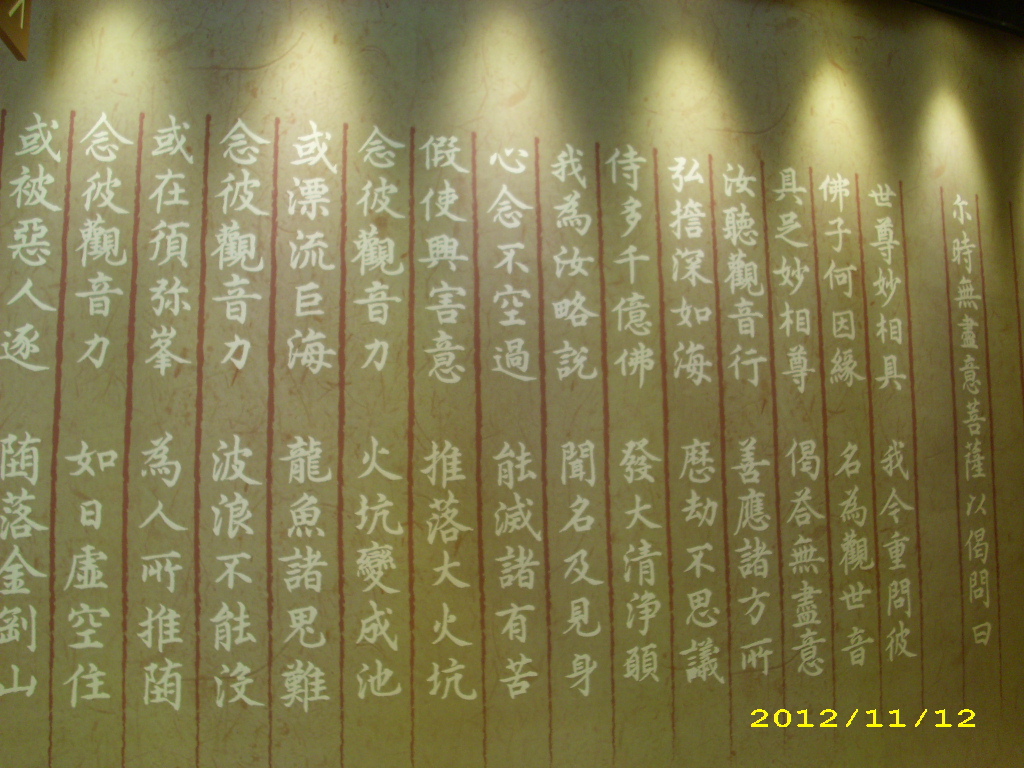 尔時無盡意菩薩以偈問曰
世尊妙相具 我今重問彼
佛子何因緣 名為觀世音
具足妙相尊 偈荅無盡意
汝聽觀音行 善應諸方所
弘擔深如海 歷劫不思議
侍多千億佛 發大清浄願
我為汝略説 聞名及見身
心念不空過 能滅諸有苦
假使興害意 推落大火坑
念彼觀音力 火坑變成池
或漂流巨海 龍魚諸鬼難
念彼觀音力 波浪不能沒
或在須弥峯 為人所推墮
念彼觀音力 如日虛空住
或被惡人逐 墮落金剛山
2012/11/12